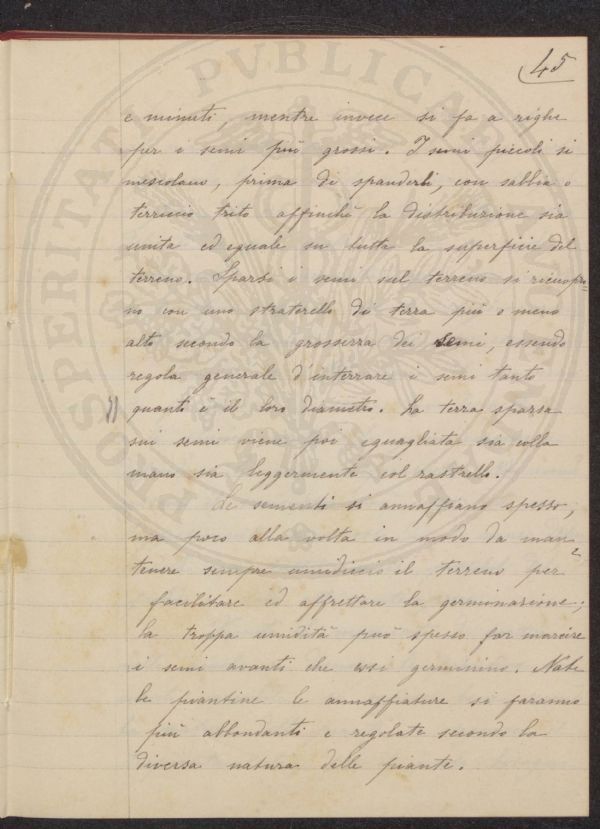 45
e minuti, mentre invece si fa a righe
per i semi più grossi. I semi piccoli si
mescolano, prima di spanderli, con sabbia o
terriccio trito affinchè la distribuzione sia
unita ed eguale su tutta la superficie del
terreno. Sparsi i semi sul terreno si ricuopro=
no con uno straterello di terra più o meno
alto secondo la grossezza dei semi, essendo
regola generale d'interrare i semi tanto
quanti è il loro diametro. La terra sparsa
sui semi viene poi eguagliata sia colla
mano sia leggermente col rastrello.
Le sementi si annaffiano spesso,
ma poco alla volta in modo da man=
tenere sempre umidiccio il terreno per
facilitare ed affrettare la germinazione;
la troppa umidità può spesso far marcire
i semi avanti che essi germinino. Nate
le piantine le annaffiature si faranno
più abbondanti e regolate secondo la
diversa natura delle piante.
PROSPERITATI PVBLICAE